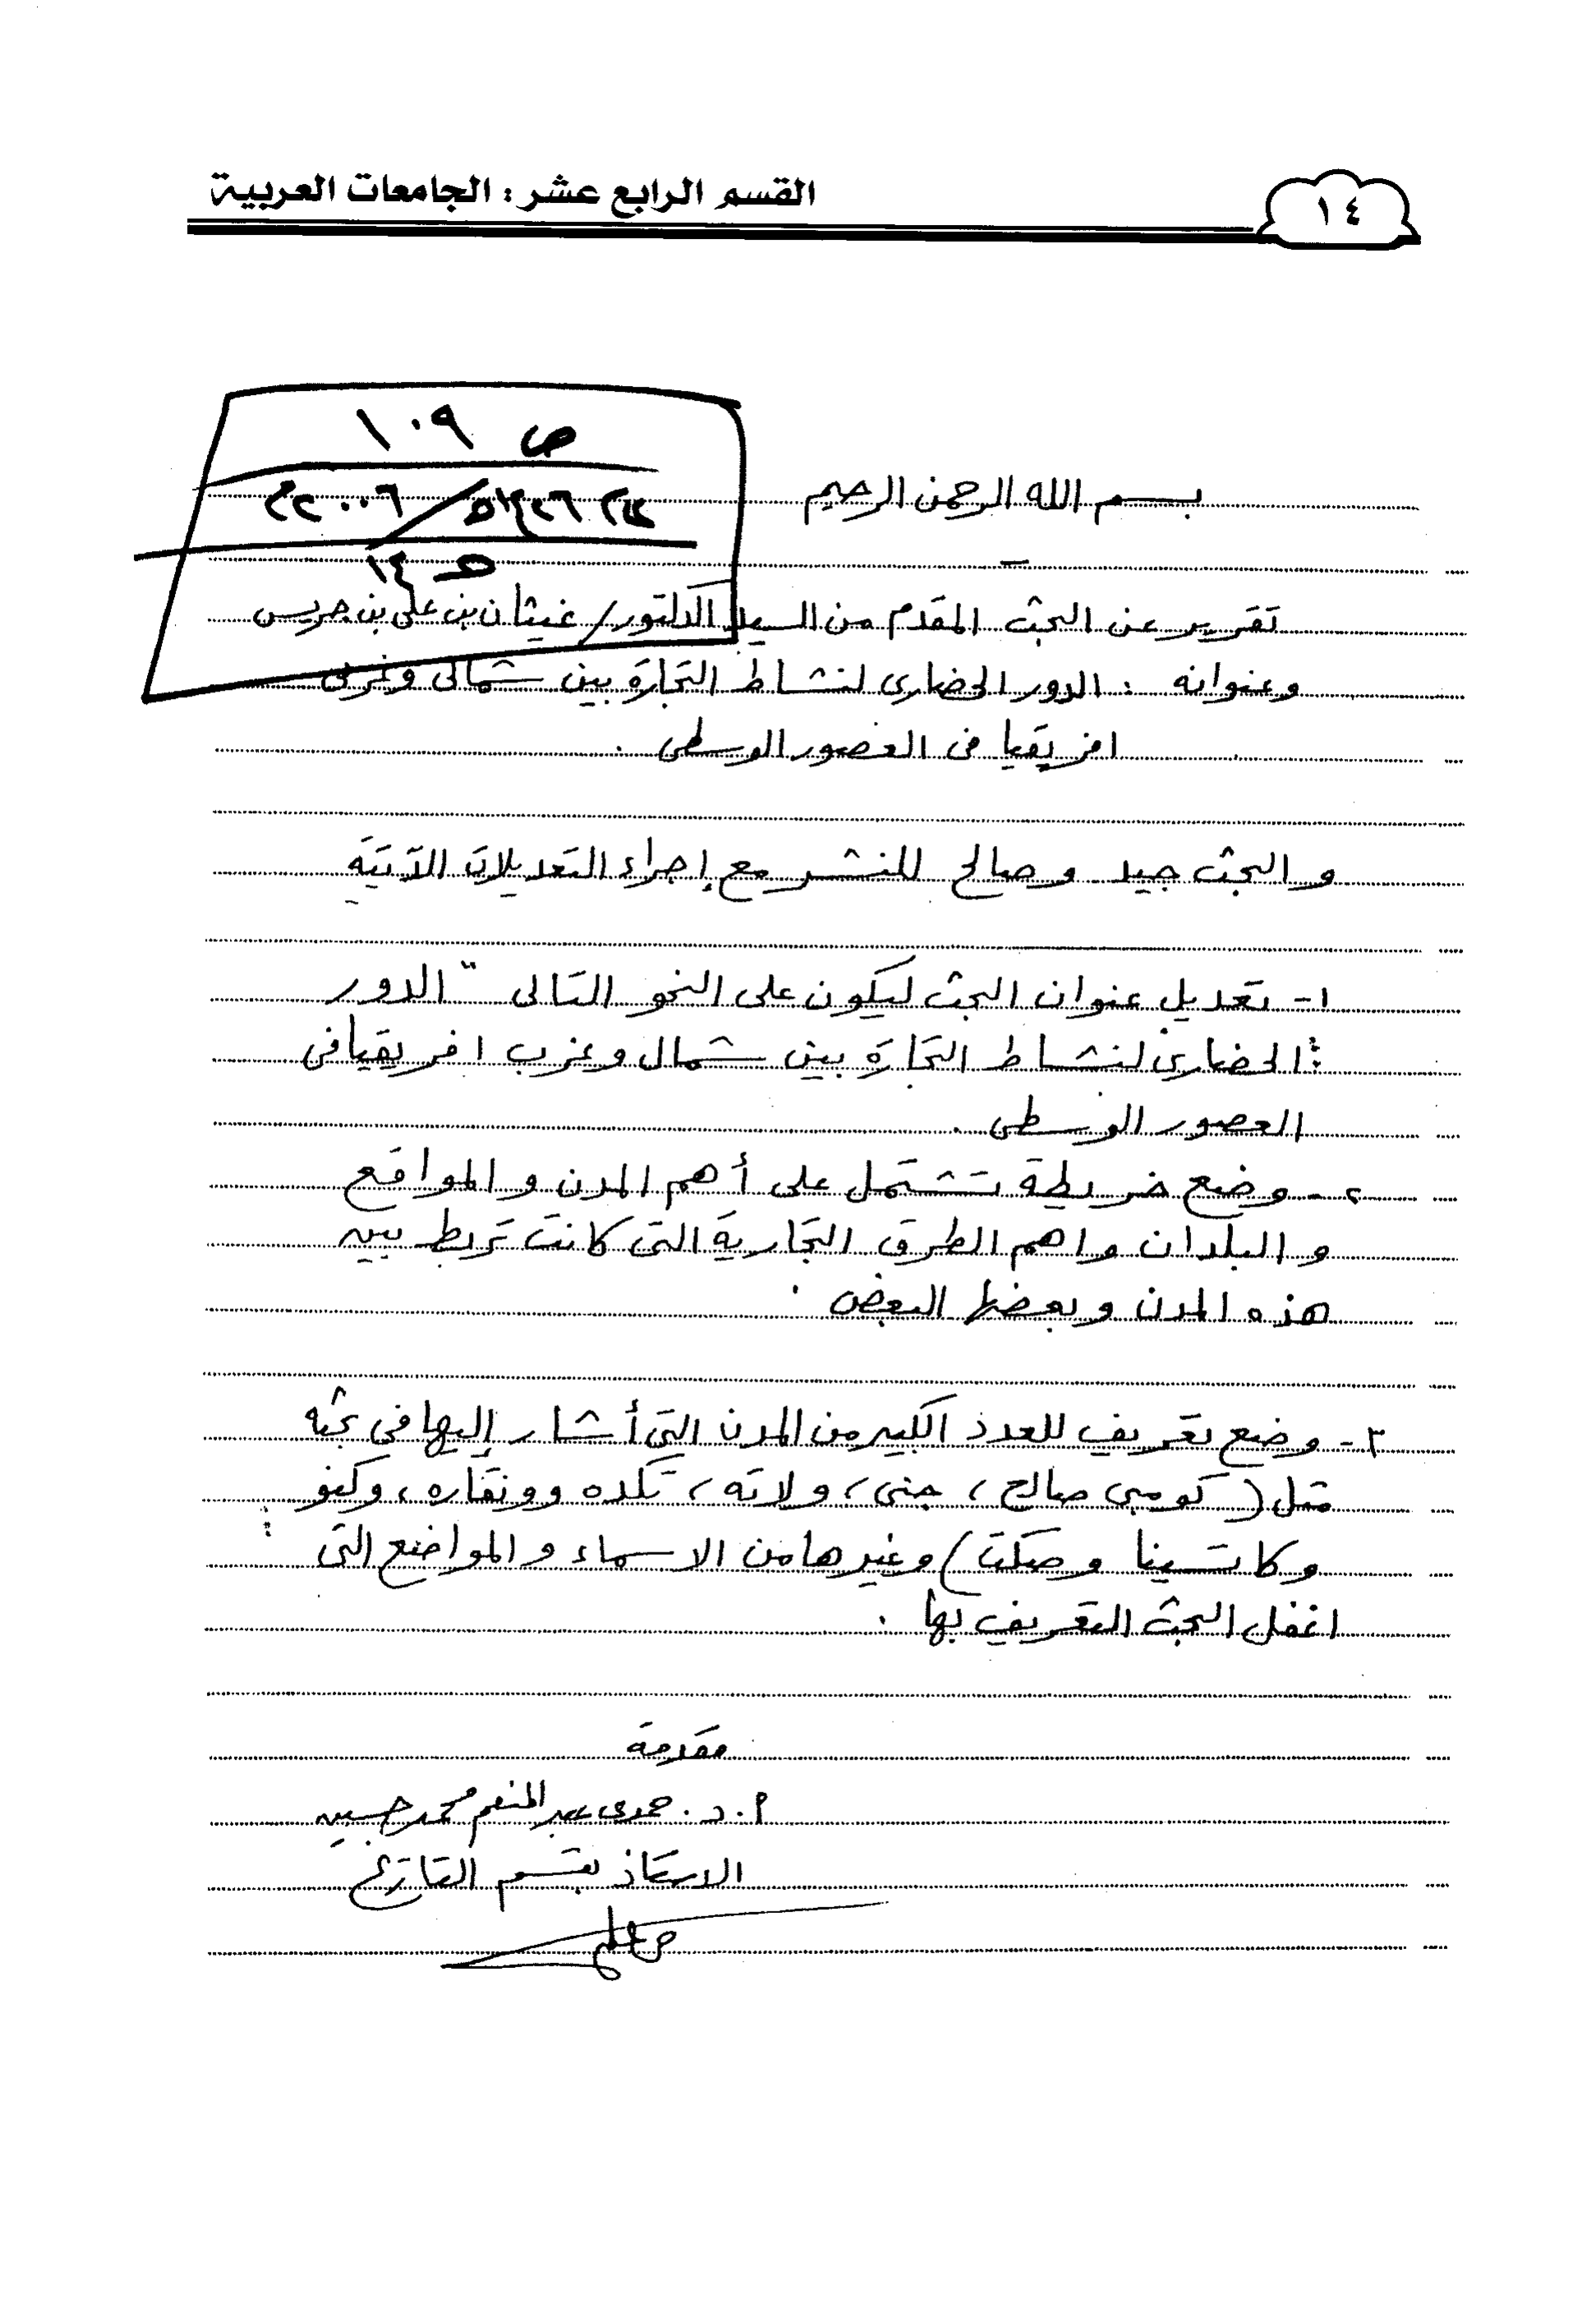 القسم الرابع عشر : الجامعات العربية
١٤
ص ١٠٩
١٤٢٦هـ / ٢٠٠٦م
بسم الله الرحمن الرحيم
تقرير عن البحث المقدم من السيد الدكتور/ غيثان بن على بن جريس
وعنوانه : الدور الحضارى لنشاط التجارة بين شمالى وغربى
افريقيا فى العصور الوسطى .
والبحث جيد وصالح للنشر مع إجراء التعديلات الآتية
١- تعديل عنوان البحث ليكون على النحو التالى " الدور
الحضارى لنشاط التجارة بين شمال وغرب افريقيا فى
العصور الوسطى .
٢- وضع خريطة تشتمل على أهم المدن والمواقع
والبلدان واهم الطرق التجارية التى كانت تربط بين
هذه المدن وبعضها البعض .
٣- وضع تعريف للعدد الكبير من المدن التى أشار إليها فى بحثه
مثل ( كومبي صالح ، جنى ، ولاته ، تكده وونقاره ، وكنو
وكاتسينا و) وغيرها من الاسماء والمواضع التى
اغفل البحث التعريف بها .
مقدمة
أ . د . حمدى عبد المنعم محمد حسين
الاستاذ بقسم التاريخ